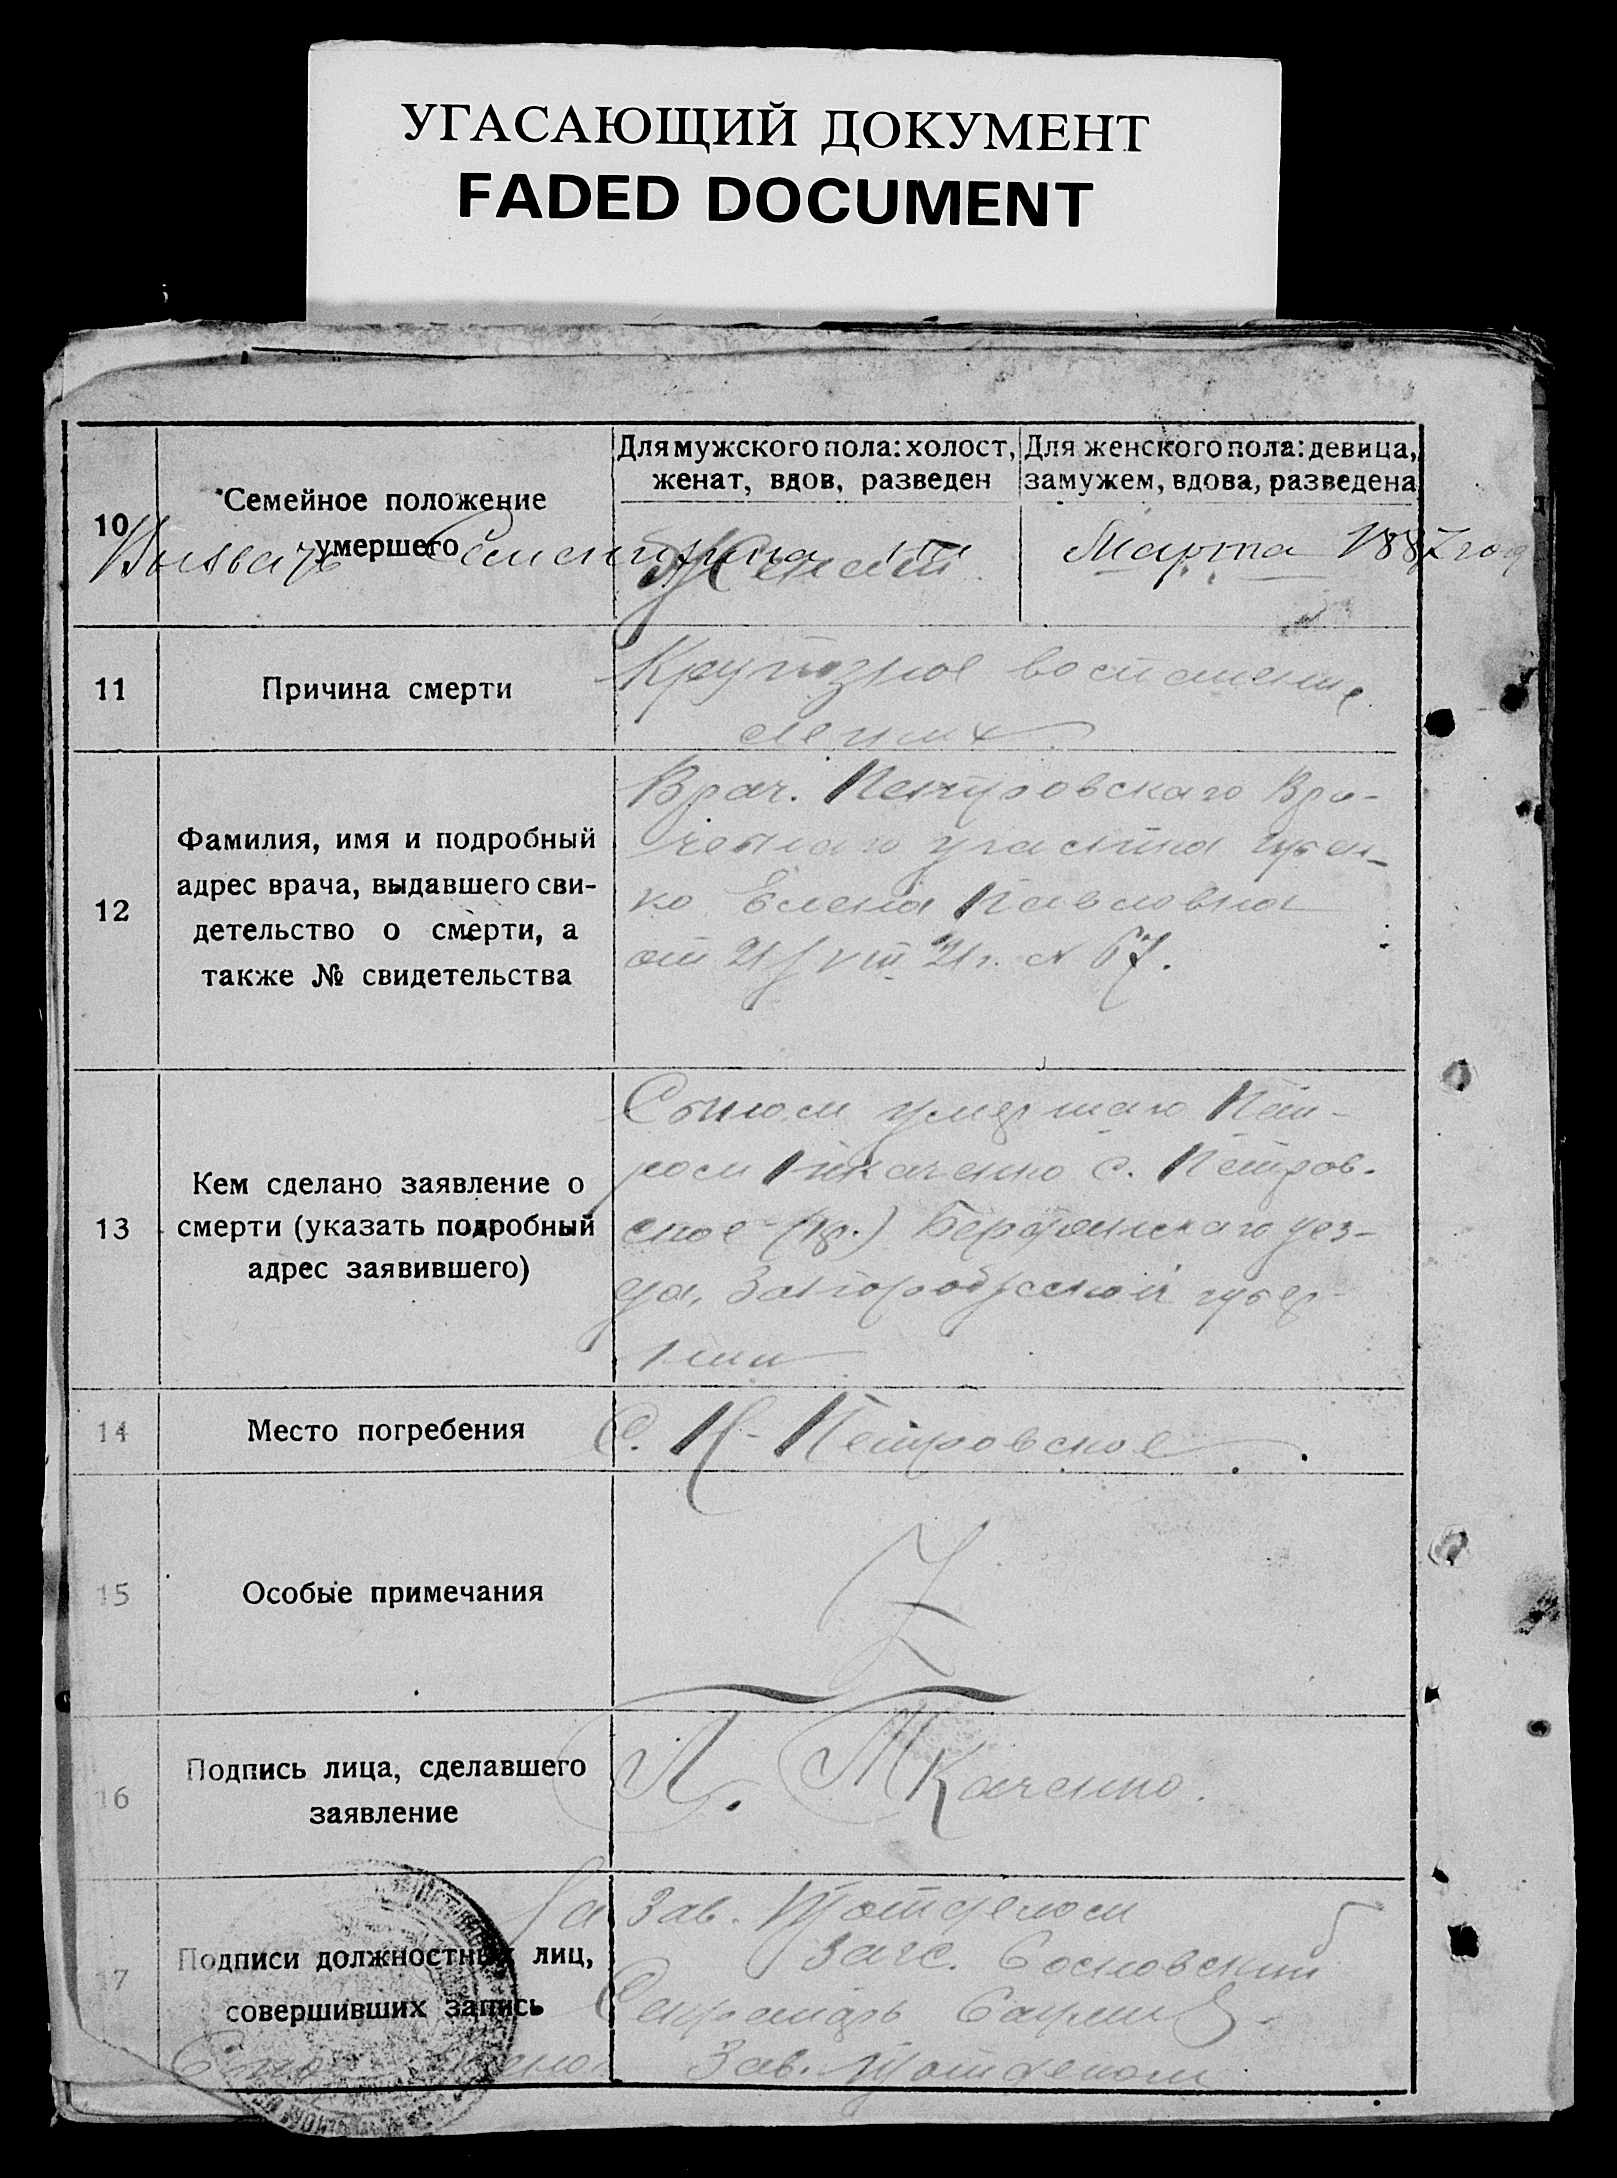 УГАСАЮЩИЙ ДОКУМЕНТ
FADED DOCUMENT
10
Семейное положение
умершего
Для мужского пола: холост,
женат, вдов, разведен
Для женского пола: девица,
замужем, вдова, разведена
Женат
Марта 1887 год
11
Причина смерти
Крупозное воспаление
легких
12
Фамилия, имя и подробный
адрес врача, выдавшего сви-
детельство о смерти, а
также № свидетельства
Врач. Петровскаго Вра-
чебнаго участка
ко Елена Павловна
от 21/VIII 21 г. № 67.
13
Кем сделано заявление о
смерти (указать подробный
адрес заявившего)
Сыном умершаго Пет-
ром Ткаченко с. Петров-
ское Бердянскаго уез-
да, Запорожской губер-
нии
14
Место погребения
С. Н-Петровское
15
Особые примечания
Z
16
Подпись лица, сделавшего
заявление
П. Ткаченко.
17
Подписи должностных лиц,
совершивших запись
За Зав. П/отделом
Загс. Сосновский
Секретарь
Зав. П/отделом